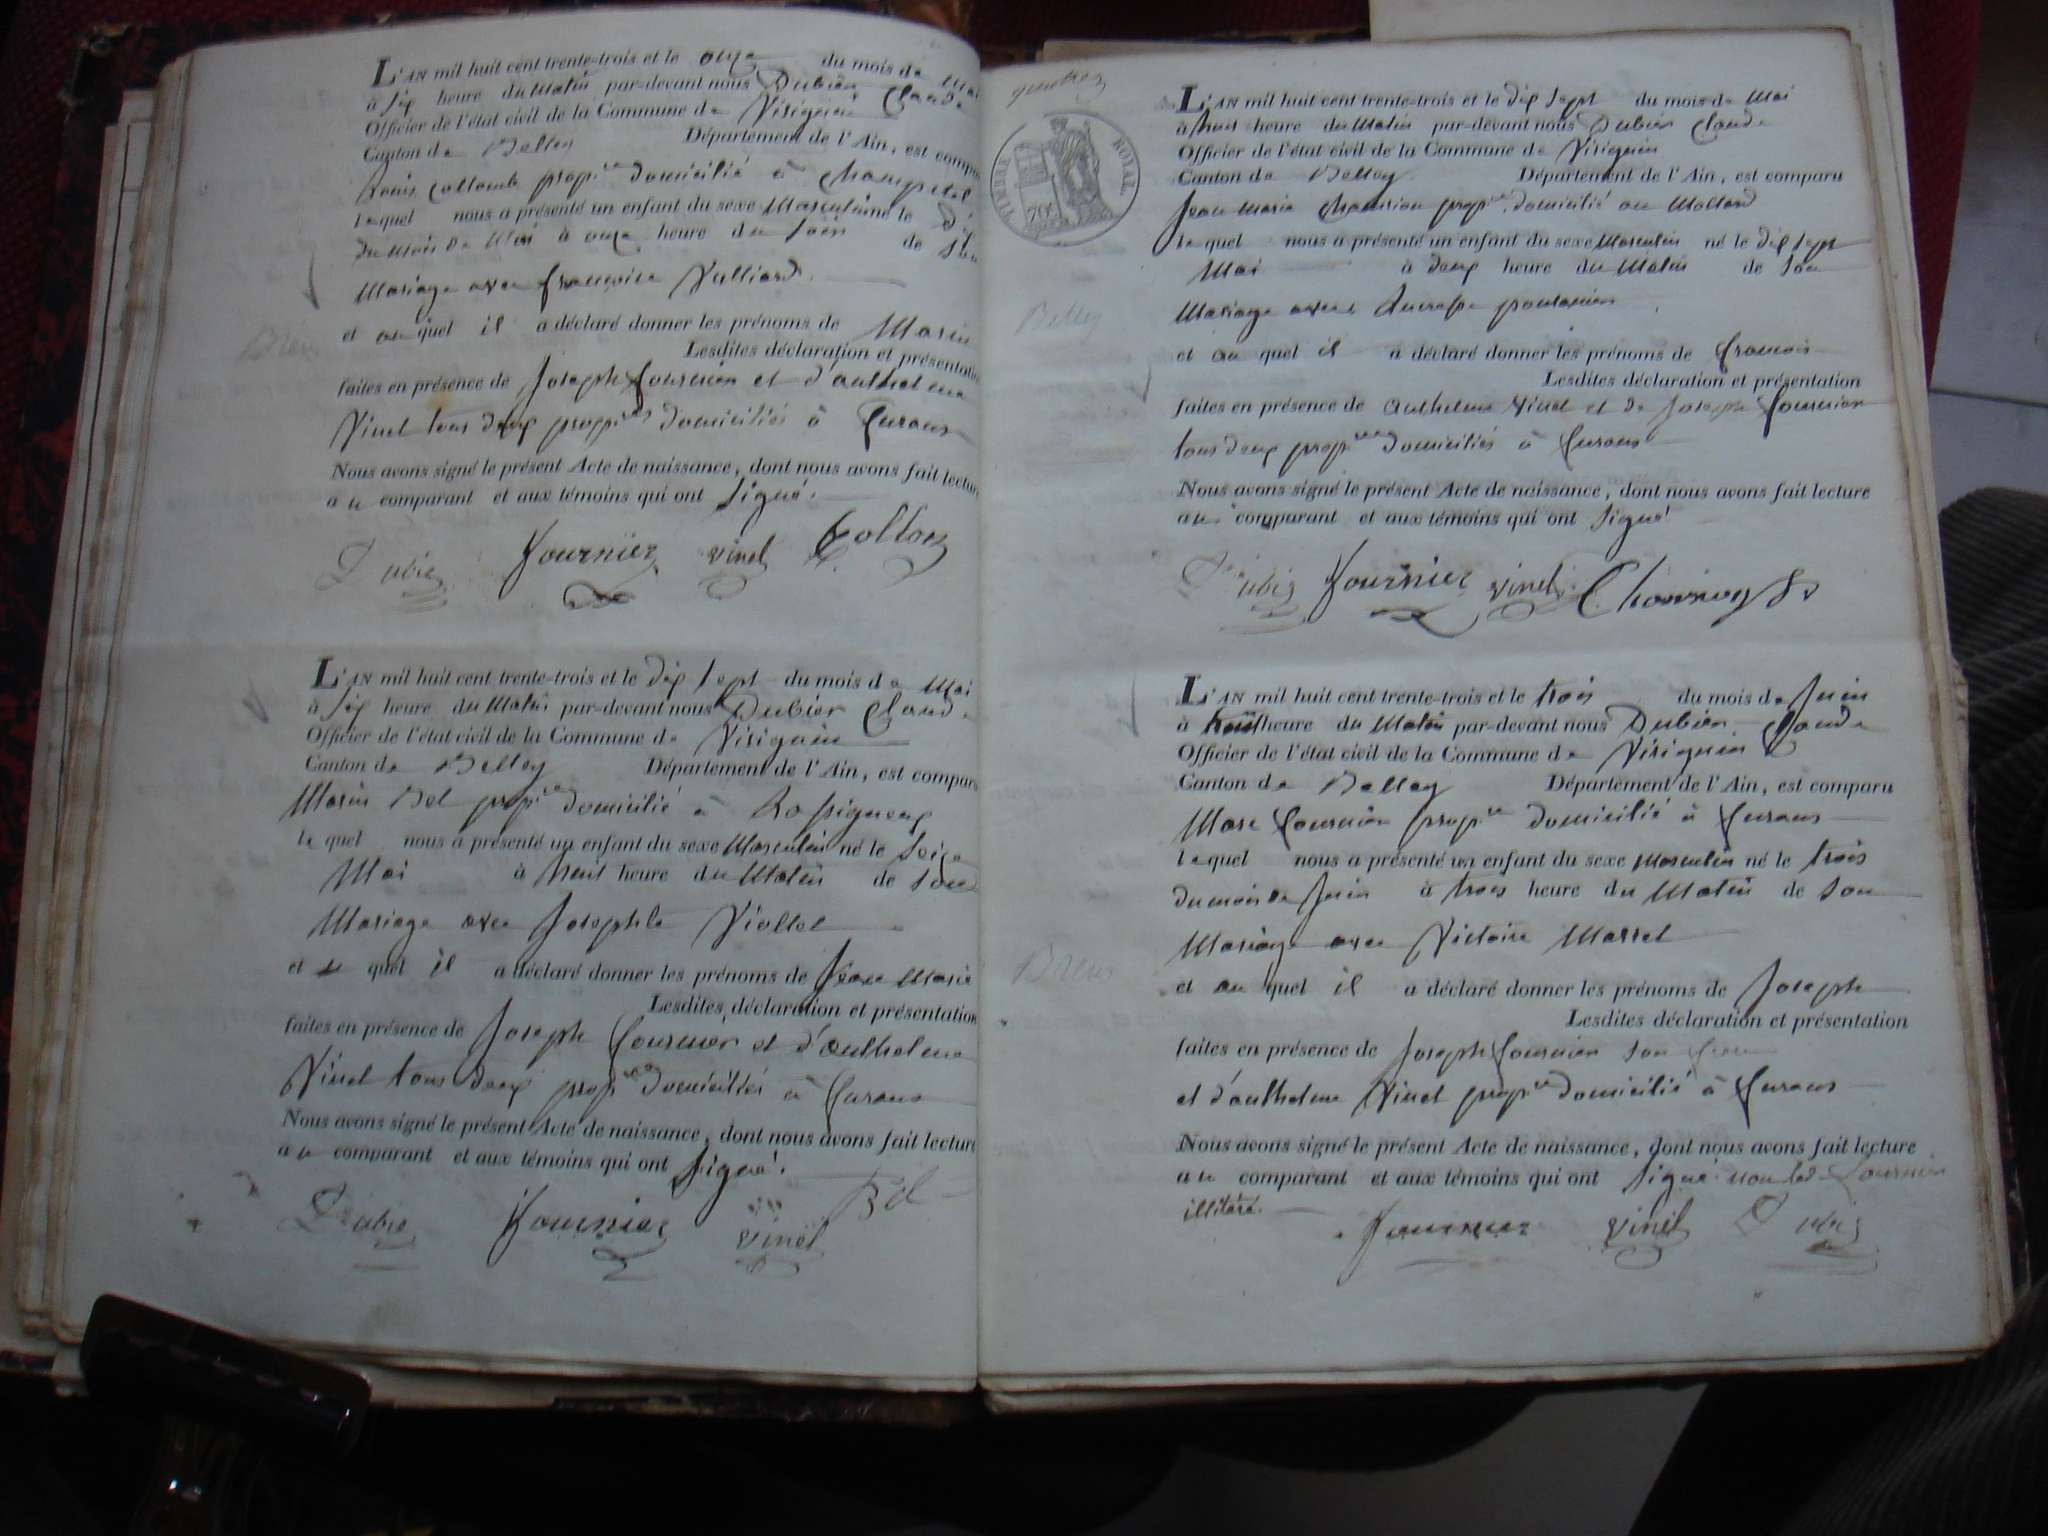 L'AN mil huit cent trente-trois et le onze du mois de Mai
à six heure du Matin par-devant nous Dubier Claude
Officier de l'état civil de la Commune de Virignin
Canton de Belley Département de l'Ain, est comparu
Louis Collomb prop.re domicilié à
lequel nous a présenté un enfant du sexe Masculin né le dix
du mois de Mai à onze heure du Soir de son
Mariage avec françoise Vulliard
et au quel il a déclaré donner les prénoms de Marin
Lesdites déclaration et présentation
faites en présence de Joseph fournier et d'anthelme
Vinet tous deux prop.res domiciliés à furans
Nous avons signé le présent Acte de naissance, dont nous avons fait lecture
au comparant et aux témoins qui ont signé.
Dubier fournier vinet Collom
L'AN mil huit cent trente-trois et le dix sept du mois de Mai
à six heure du Matin par-devant nous Dubier Claude
Officier de l'état civil de la Commune de Virignin
Canton de Belley Département de l'Ain, est comparu
Marin Bel prop.re domicilié à Rossigneux
le quel nous a présenté un enfant du sexe Masculin né le seize
Mai à huit heure du Matin de son
Mariage avec Josephte Viollet
et quel il a déclaré donner les prénoms de Jean Marie
Lesdites déclaration et présentation
faites en présence de Joseph fournier et d'anthelme
Vinet tous deux prop.res domiciliés à furans
Nous avons signé le présent Acte de naissance, dont nous avons fait lecture
au comparant et aux témoins qui ont signé.
Dubier fournier vinet Bel
TIMBRE ROYAL
L'AN mil huit cent trente-trois et le dix sept du mois de Mai
à huit heure du Matin par-devant nous Dubier Claude
Officier de l'état civil de la Commune de Virignin
Canton de Belley Département de l'Ain, est comparu
Jean Marie prop.re domicilié au Mollard
lequel nous a présenté un enfant du sexe Masculin né le dix sept
Mai à deux heure du Matin de son
Mariage avec
Belley
et au quel il a déclaré donner les prénoms de francois
Lesdites déclaration et présentation
faites en présence de anthelme Vinet et de Joseph fournier
tous deux prop.res domiciliés à furans
Nous avons signé le présent Acte de naissance, dont nous avons fait lecture
au comparant et aux témoins qui ont signé
Dubier fournier vinet
L'AN mil huit cent trente-trois et le trois du mois de Juin
à heure du Matin par-devant nous Dubier Claude
Officier de l'état civil de la Commune de Virignin
Canton de Belley Département de l'Ain, est comparu
Marc fournier prop.re domicilié à furans
lequel nous a présenté un enfant du sexe Masculin né le trois
du mois de Juin à trois heure du Matin de son
Mariage avec Victoire Marrel
Brens
et au quel il a déclaré donner les prénoms de Joseph
Lesdites déclaration et présentation
faites en présence de Joseph fournier son frere
et d'anthelme Vinet prop.re domicilié à furans
Nous avons signé le présent Acte de naissance, dont nous avons fait lecture
au comparant et aux témoins qui ont signé non led. fournier
illitéré.
fournier vinet Dubier